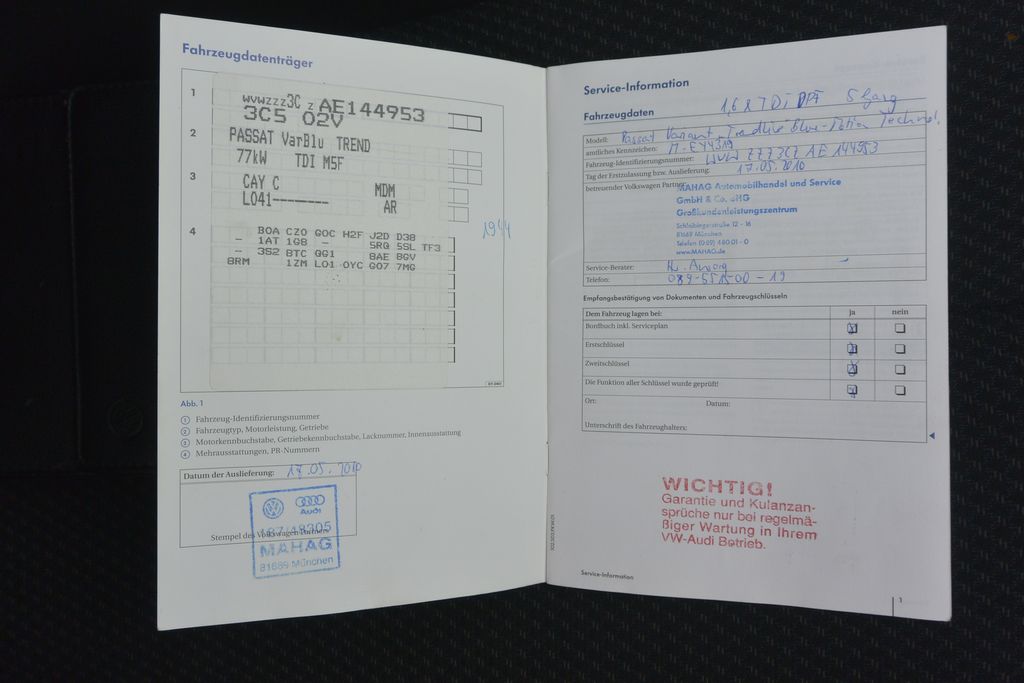 Fahrzeugdatenträger
1
WVWZZZ3C Z AE144953
3C5 02V
2
PASSAT VarBlu TREND
77kW TDI M5F
3
CAY C MDM
L041-------- AR
1944
4
BOA CZO GOC H2F J2D D38
- 1AT 1GB - 5RQ 5SL TF3
- 352 BTC QG1 8AE BGV
8RM 1ZM LO1 OYC GO7 7MG
Abb. 1
1 Fahrzeug-Identifizierungsnummer
2 Fahrzeugtyp, Motorleistung, Getriebe
3 Motorkennbuchstabe, Getriebekennbuchstabe, Lacknummer, Innenausstattung
4 Mehrausstattungen, PR-Nummern
Datum der Auslieferung: 17.05.2010
Audi
Stempel des Volkswagen Partners
MAHAG
81669 München
Service-Information
Fahrzeugdaten
1,6 l TDI DPF 5 Gang
Modell: Passat Variant Trendline Blue-Motion Technol.
amtliches Kennzeichen: M-EY4319
Fahrzeug-Identifizierungsnummer: WVW ZZZ 3CZ AE 144953
Tag der Erstzulassung bzw. Auslieferung: 17.05.2010
betreuender Volkswagen Partner: MAHAG Automobilhandel und Service
GmbH & Co. oHG
Großkundenleistungszentrum
Schleibingerstraße 12 - 16
81669 München
Telefon (0 89) 4 80 01 - 0
www.MAHAG.de
Service-Berater:
Telefon:
Empfangsbestätigung von Dokumenten und Fahrzeugschlüsseln
Dem Fahrzeug lagen bei: ja nein
Bordbuch inkl. Serviceplan
Erstschlüssel
Zweitschlüssel
Die Funktion aller Schlüssel wurde geprüft!
Ort: Datum:
Unterschrift des Fahrzeughalters:
WICHTIG!
Garantie und Kulanzan-
sprüche nur bei regelmä-
ßiger Wartung in Ihrem
VW-Audi Betrieb.
Service-Information